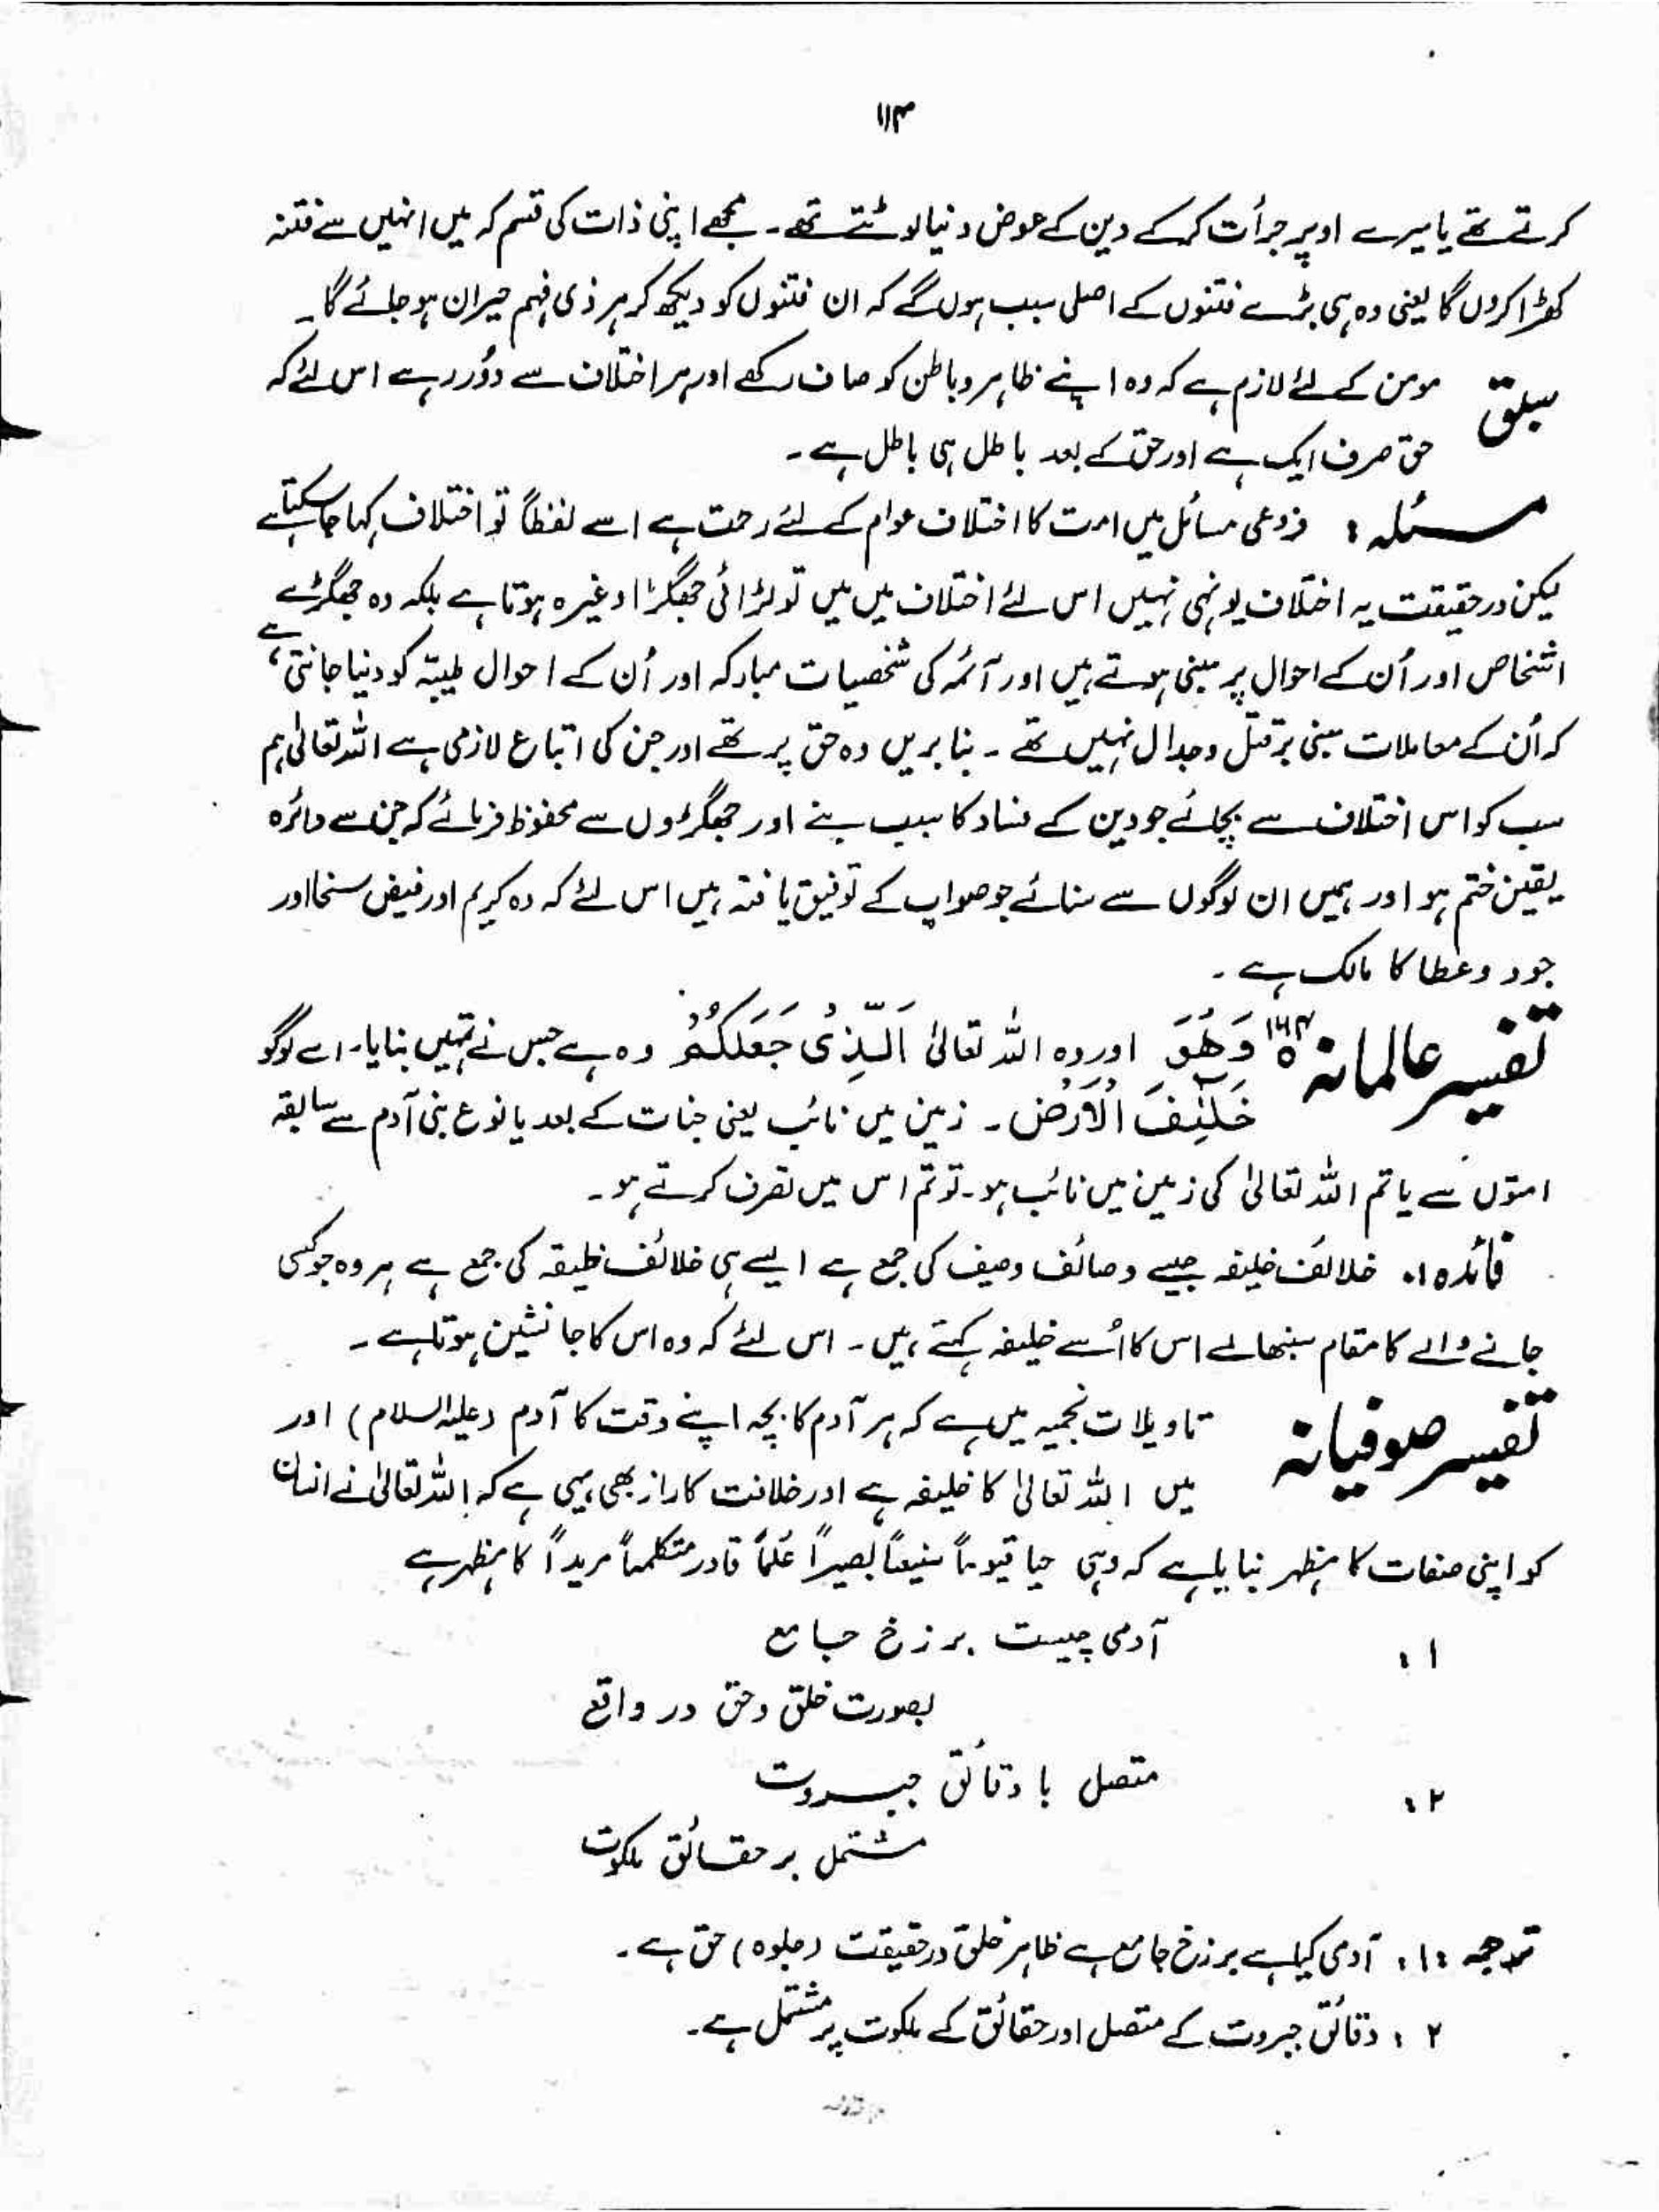 ۱۱۴
کرتے تھے یا میرے اوپر جرأت کرکے دین کے عوض دنیا لوٹتے تھے۔ مجھے اپنی ذات کی قسم کہ میں انہیں سے فتنہ
کھڑا کروں گا یعنی وہ ہی بڑے فتنوں کے اصلی سبب ہوں گے کہ ان فتنوں کو دیکھ کر ہر ذی فہم حیران ہو جائے گا۔
سبق مومن کے لئے لازم ہے کہ وہ اپنے ظاہر و باطن کو صاف رکھے اور ہر اختلاف سے دُور رہے اس لئے کہ
حق صرف ایک ہے اور حق کے بعد باطل ہی باطل ہے۔
مسئلہ : فروعی مسائل میں امت کا اختلاف عوام کے لئے رحمت ہے اسے لفظاً تو اختلاف کہا جا سکتا ہے
لیکن درحقیقت یہ اختلاف یونہی نہیں اس لئے اختلاف میں میں تو لڑائی جھگڑا وغیرہ ہوتا ہے بلکہ وہ جھگڑے
اشخاص اور اُن کے احوال پر مبنی ہوتے ہیں اور آئمہ کی شخصیات مبارکہ اور اُن کے احوال طیبّہ کو دنیا جانتی ہے،
کہ اُن کے معاملات مبنی بر قتل و جدال نہیں تھے۔ بنا بریں وہ حق پر تھے اور جن کی اتباع لازمی ہے اللہ تعالیٰ ہم
سب کو اس اختلاف سے بچائے جو دین کے فساد کا سبب بنے اور جھگڑوں سے محفوظ فرمائے کہ جن سے دائرہ
یقین ختم ہو اور ہمیں ان لوگوں سے بنائے جو صواب کے توفیق یافتہ ہیں اس لئے کہ وہ کریم اور فیض سخا اور
جود و عطا کا مالک ہے۔
تفسیر عالمانہ ۱۶۴ وَھُوَ اور وہ اللہ تعالیٰ اَلَّذِیْ جَعَلَکُمْ وہ ہے جس نے تمہیں بنایا۔ اے لوگو
خَلٰٓئِفَ الْاَرْضِ۔ زمین میں نائب یعنی جنات کے بعد یا نوع بنی آدم سے سابقہ
امتوں سے یا تم اللہ تعالیٰ کی زمین میں نائب ہو۔ تو تم اس میں تصرف کرتے ہو۔
فائدہ ۱۰ خلائف خلیفہ جیسے وصائف وصیف کی جمع ہے ایسے ہی خلائف خلیفہ کی جمع ہے ہر وہ جو کسی
جانے والے کا مقام سنبھالے اس کا اُسے خلیفہ کہتے ہیں۔ اس لئے کہ وہ اس کا جانشین ہوتا ہے۔
تفسیر صوفیانہ تاویلات نجمیہ میں ہے کہ ہر آدم کا بچہ اپنے وقت کا آدم (علیہ السلام) اور
میں اللہ تعالیٰ کا خلیفہ ہے اور خلافت کا راز بھی یہی ہے کہ اللہ تعالیٰ نے انسان
کو اپنی صفات کا مظہر بنایا ہے کہ وہی حیا قیوماً سمیعاً بصیراً علماً قادر متکلماً مریداً کا مظہر ہے
۱ : آدمی چیست برزخ جامع
بصورت خلق و حق در واقع
۲ : متصل با دقائق جبروت
مشتمل بر حقائق ملکوت
ترجمہ :۱: آدمی کیا ہے برزخ جامع ہے ظاہر خلق درحقیقت (جلوہ) حق ہے۔
۲ : دقائق جبروت کے متصل اور حقائق کے ملکوت پر مشتمل ہے۔